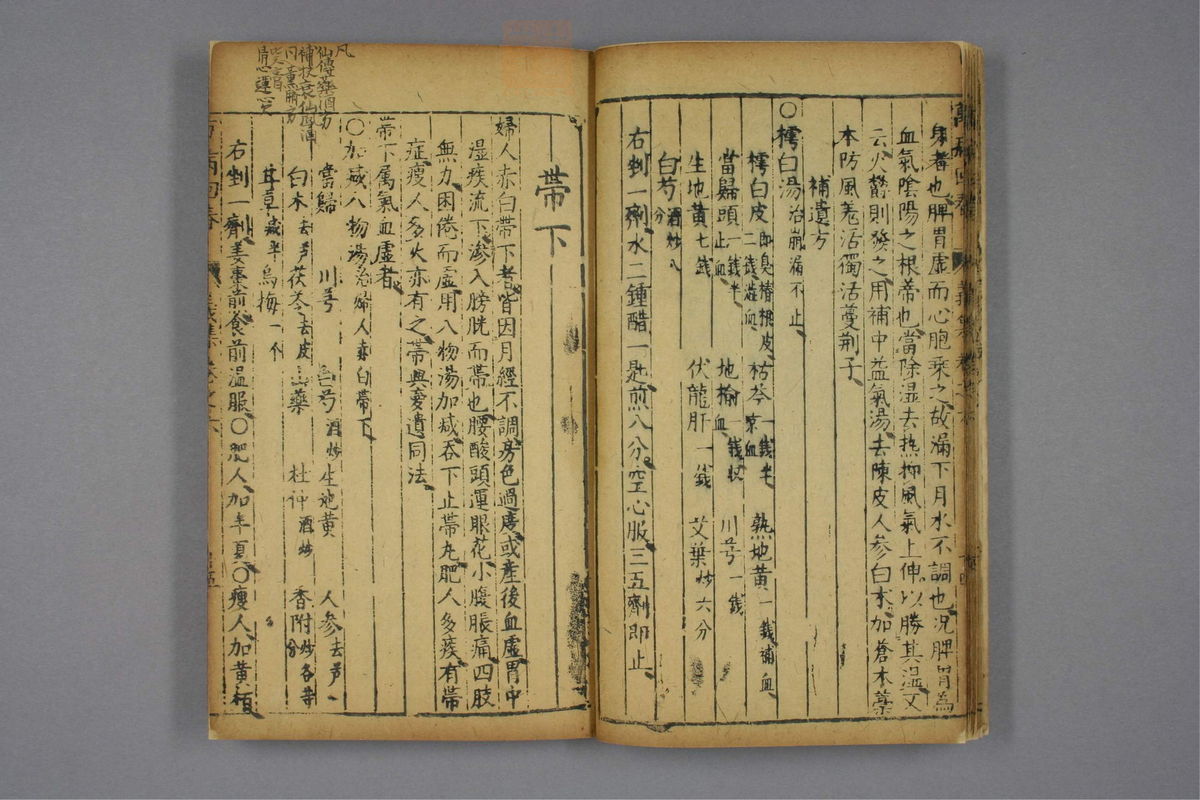 身者也脾胃虛而心胞乘之故漏下月水不調也况脾胃為
血氣陰陽之根蒂也當除湿去热抑風氣上伸以勝其湿又
云火欝則發之用補中益氣湯去陳皮人參白术加蒼术藁
本防風羗活獨活蔓荆子
補遺方
○樗白湯治崩漏不止
樗白皮即臭椿根皮二錢澁血 枯芩一錢半凉血 熟地黄一錢補血
當歸頭一錢半止血 地榆一錢收血 川芎一錢
生地黄七錢 伏龍肝一錢 艾葉炒六分
白芍酒炒八分
右剉一劑水二鍾醋一匙煎八分空心服三五劑即止
帶下
婦人赤白帶下者皆因月經不調房色過度或産後血虛胃中
湿痰流下滲入膀胱而帶也腰酸頭運眼花小腹脹痛四肢
無力困倦而虛用八物湯加减吞下止帶丸肥人多痰有帶
症瘦人多火亦有之帶與夢遺同法
帶下属氣血虛者
○加减八物湯治婦人赤白帶下
當歸 川芎 白芍酒炒 生地黄 人參去芦
白术去芦 茯苓去皮 山藥 杜仲酒炒 香附炒各等分
甘草减半 烏梅一个
右剉一劑姜棗煎食前温服○肥人加半夏○瘦人加黄栢
凡
仙傳藥酒方